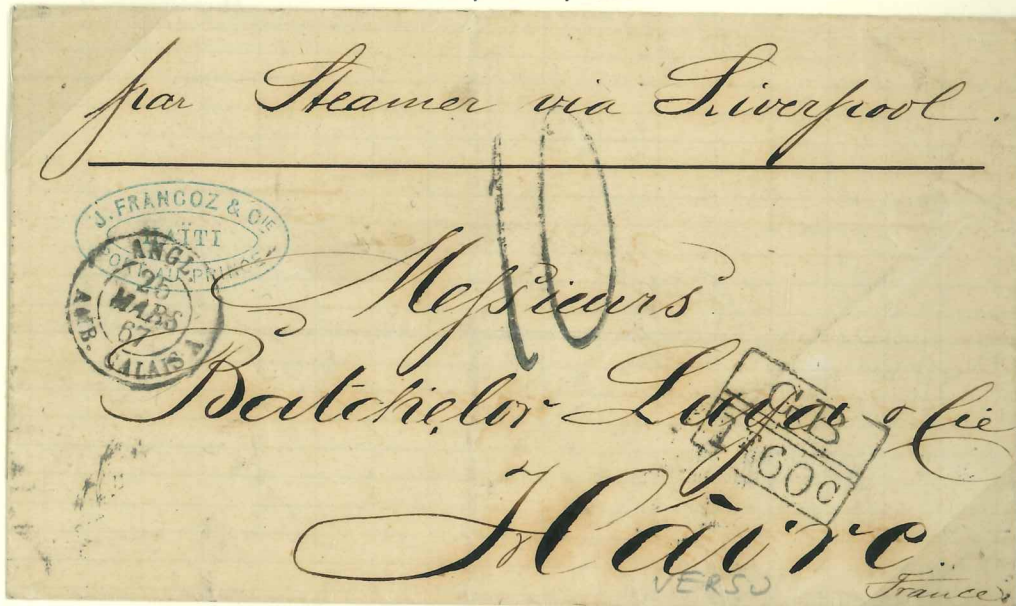 par Steamer via Liverpool.
10
J. FRANCOZ & CIE
HAÏTI
PORT-AU-PRINCE
ANGL.
25
MARS
67
AMB. CALAIS A
Messieurs
Batchelor & Cie
GB
1F60c
Hâvre
VERSO
France